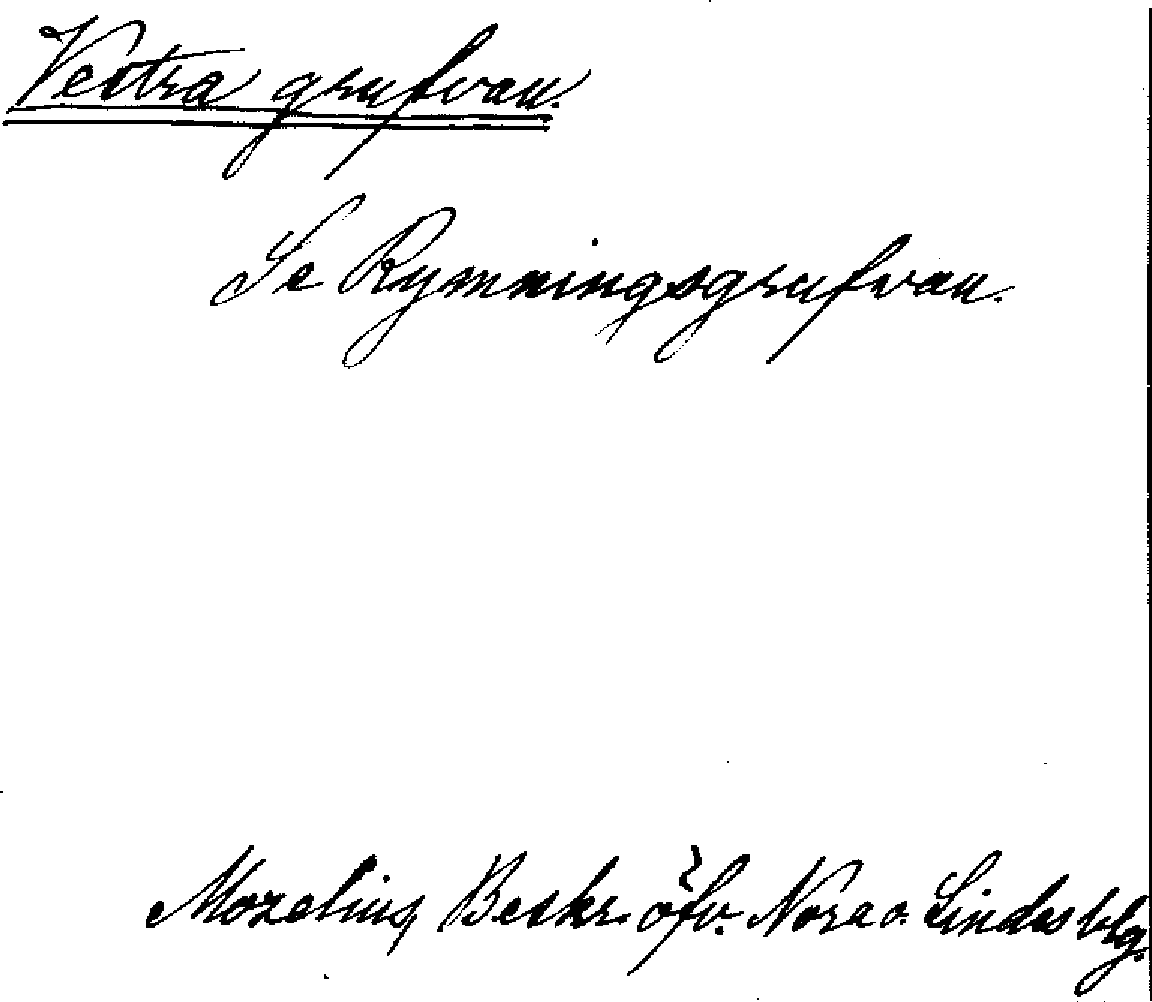 Vestra grufvan.
Se Rymningsgrufvan.
Mozelius, Beskr. öfv. Nora o. Lindes blg.